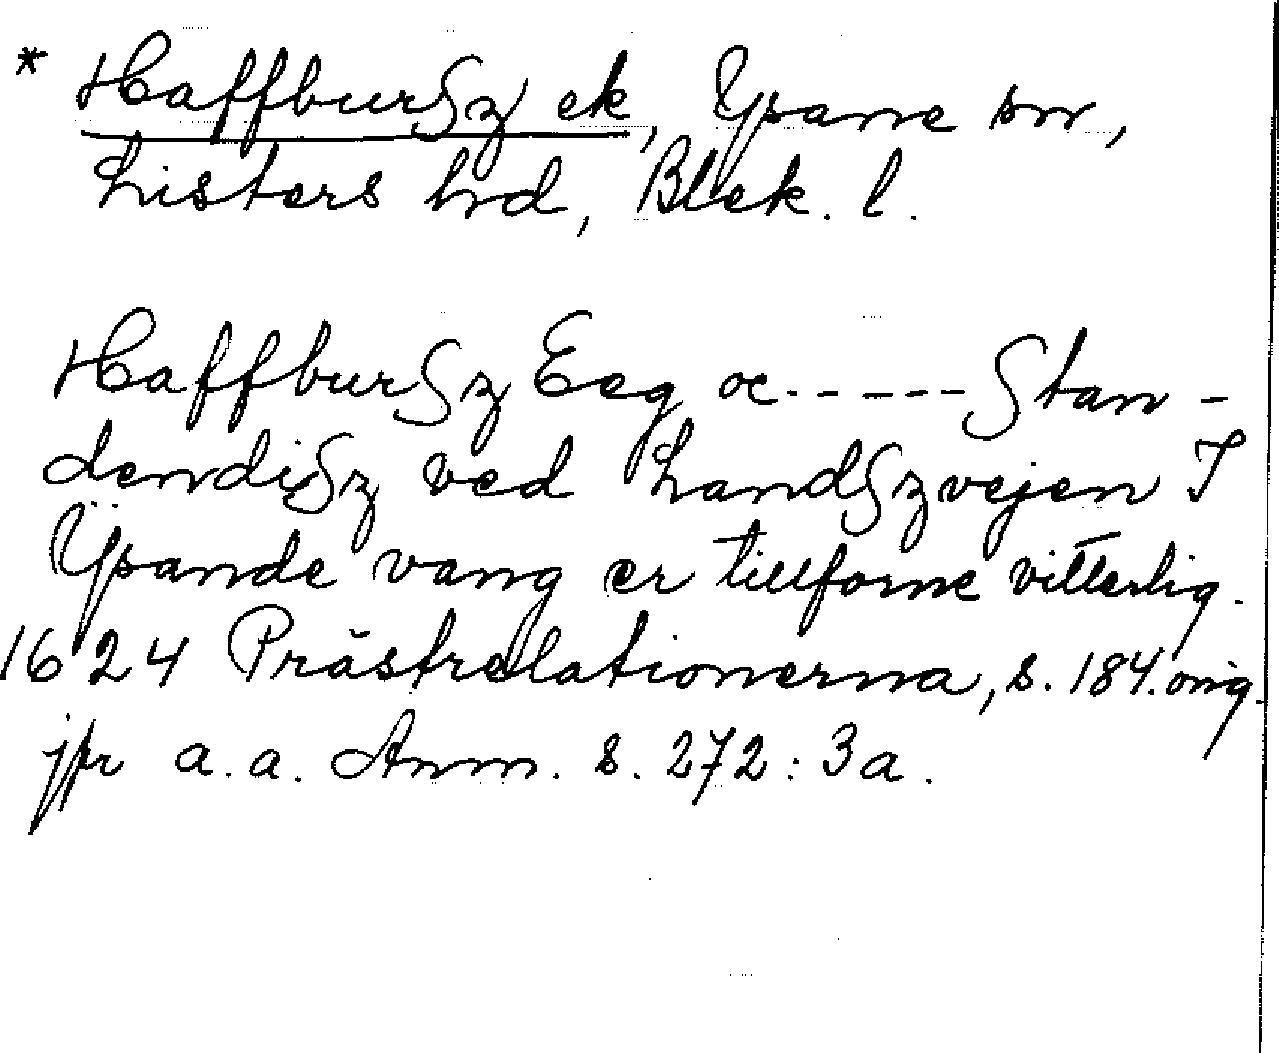 * Haffburſz ek, Ysane sn,
Listers hrd, Blek. l.
Haffburſz Eeg oc - - - - - ſtan-
dendiſz ved Landſzvejen I
Ÿsande vang er tillforne vitterlig.
1624 Prästrelationerna, s. 184. orig.
jfr a. a. Anm. s. 272: 3a.